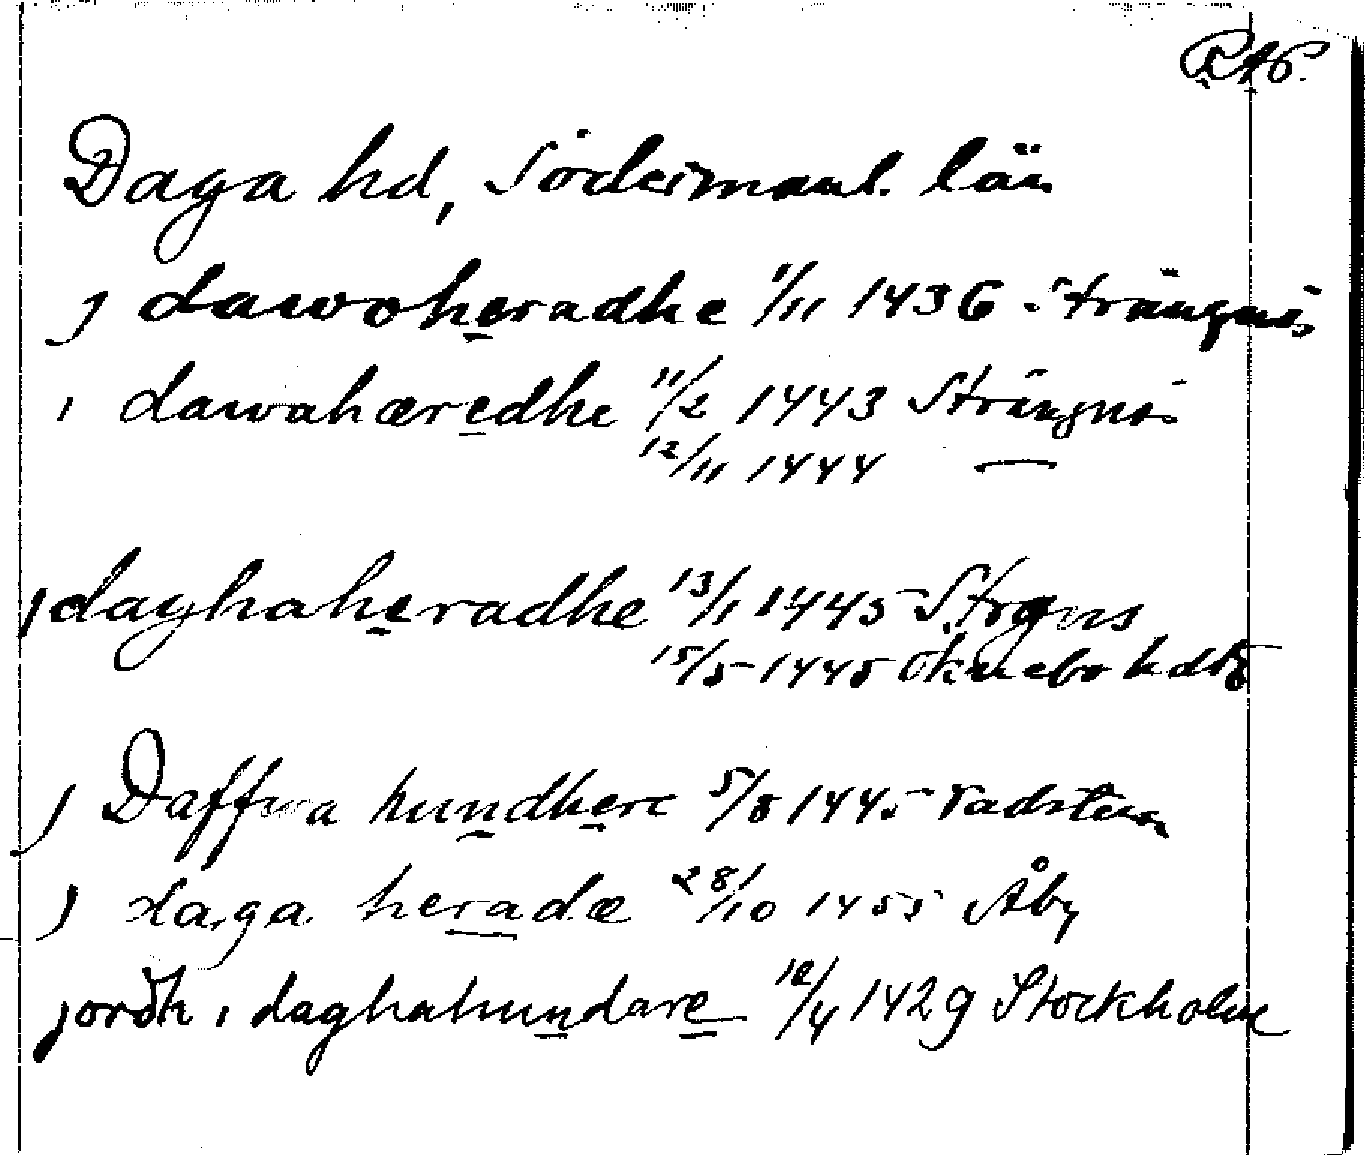 RAP.
Daga hd, Södermanl. län
j dawoheradhe 1/11 1436 Strängnäs
i dawahæredhe 11/2 1443 Strängnäs
12/11 1444 —
j daghaheradhe 13/1 1445 Strgns
15/5 1445 Öknebo hdtg
j Daffwa hundhere 5/8 1445 Vadstena
j daga heradæ 28/10 1455 Åby
jordh i daghahundare 12/4 1429 Stockholm